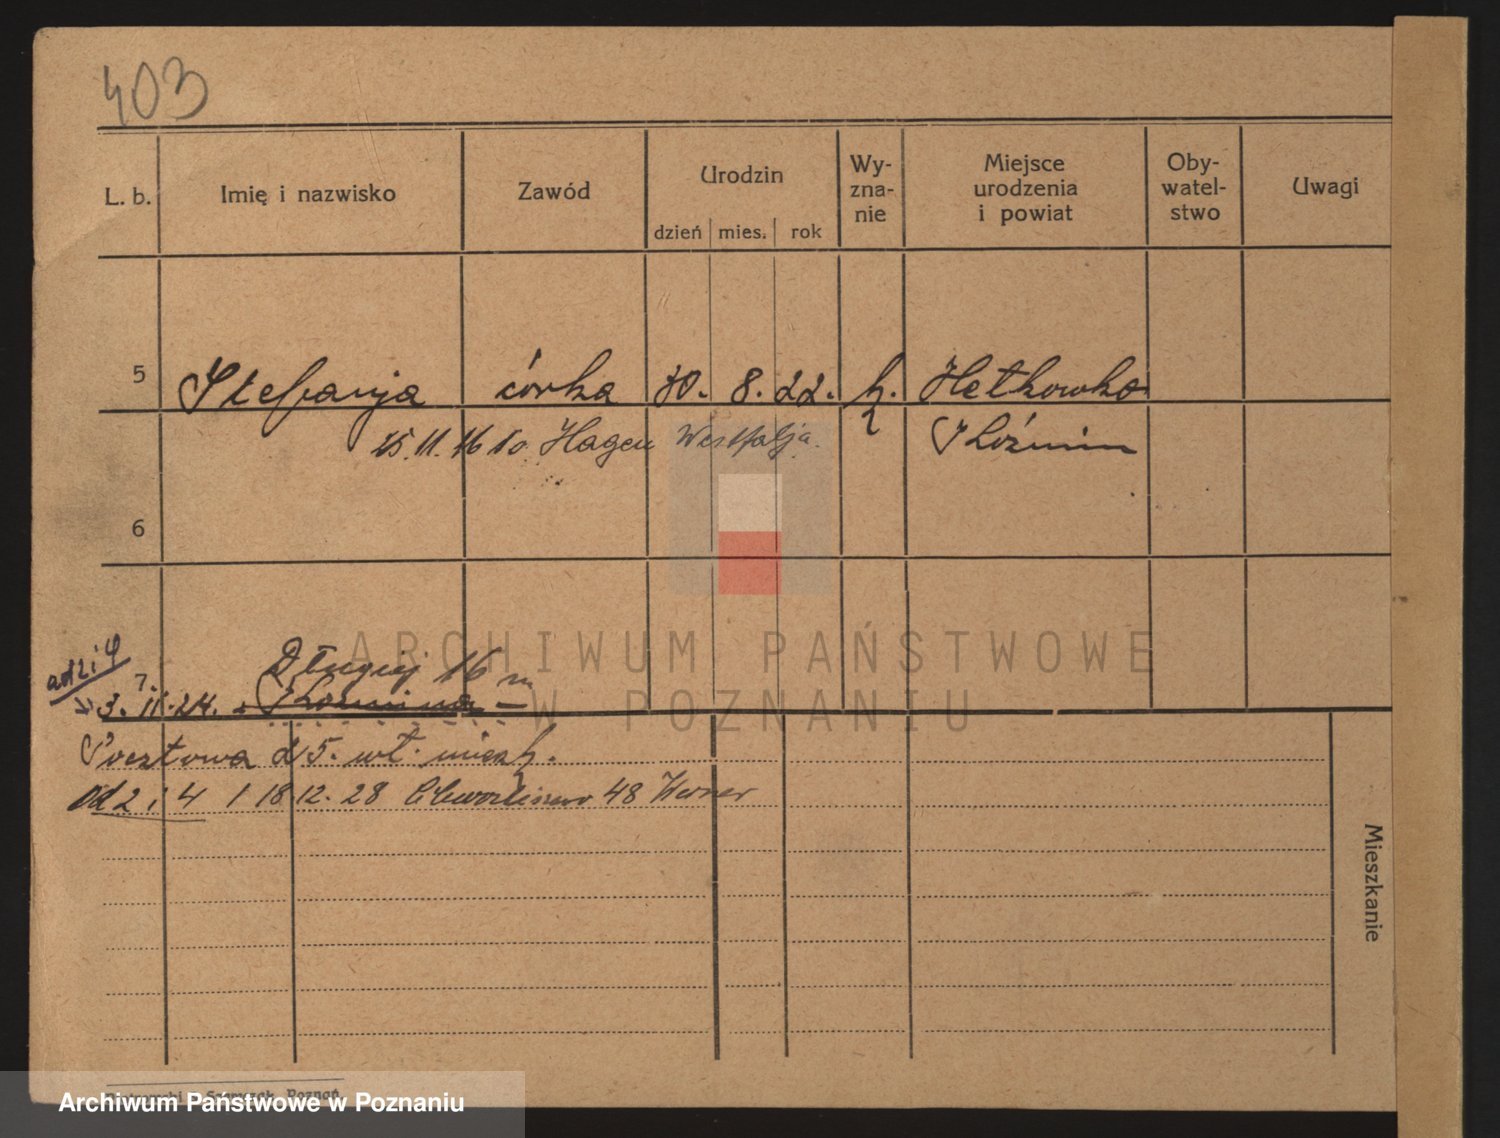 403
L. b. Imię i nazwisko Zawód Urodzin dzień mies. rok Wy-zna-nie Miejsce urodzenia i powiat Oby-watel-stwo Uwagi
5 Stefanja córka 30. 8. 22. k.
25. 11. 16 to Hagen Westfalja.
6
7.
Długiej 16 m
3. 11. 24.
Pocztowa 25. wł. miesz.
od 2 i 4 18 12. 28 48 Werner
Mieszkanie
ARCHIWUM PAŃSTWOWE
W POZNANIU
Poznań
Archiwum Państwowe w Poznaniu